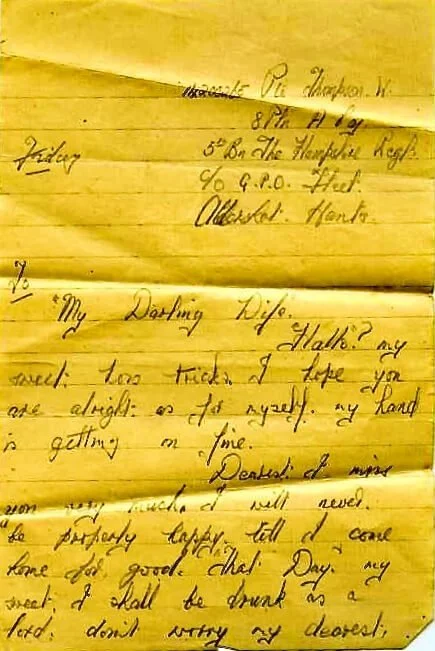 Pte Thompson. W.
8 Pltn A Coy
Friday
5th Bn The Hampshire Regt.
C/O G.P.O. Fleet.
Aldershot. Hants.
To
"My Darling Wife.
"Hallo"? my
sweet. hows tricks. I hope you
are alright. as for myself. my hand
is getting on fine.
Dearest. I miss
you very much, I will never.
"be properly happy. till I come
home for good. "That Day." my
sweet. I shall be drunk as a
lord. don't worry my dearest,